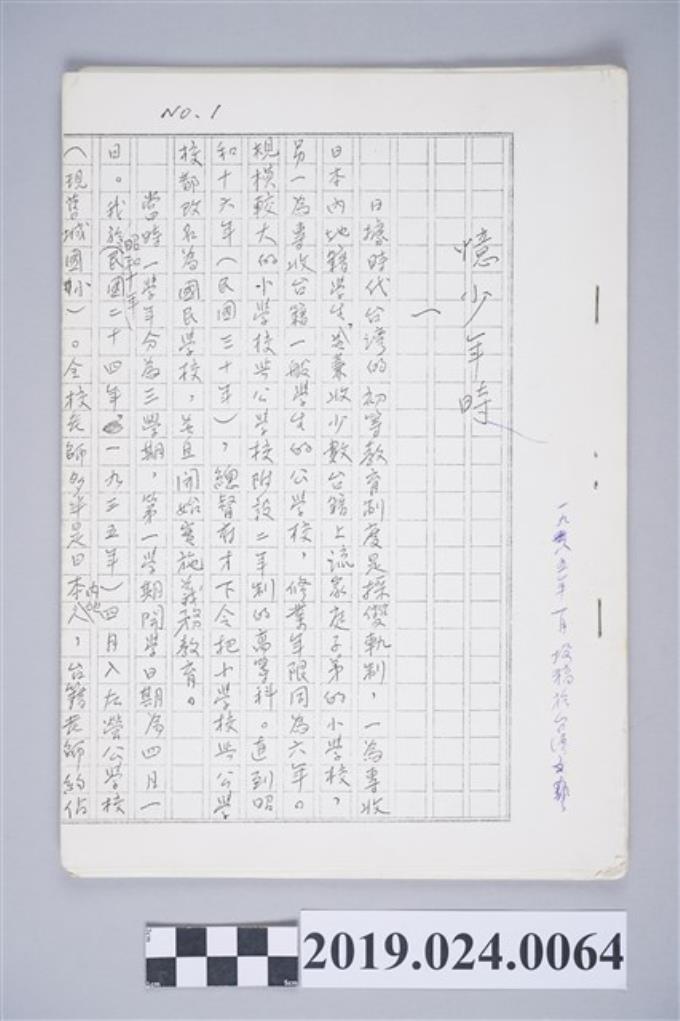 NO. 1
一九八五年一月投稿於台灣文藝
憶少年時
一
日據時代台灣的初等教育制度是採雙軌制，一為專收
日本內地籍學生，並兼收少數台籍上流家庭子弟的小學校，
另一為專收台籍一般學生的公學校，修業年限同為六年。
規模較大的小學校與公學校附設二年制的高等科。直到昭
和十六年（民國三十年），總督府才下令把小學校與公學
校都改名為國民學校，並且開始實施義務教育。
當時一學年分為三學期，第一學期開學日期為四月一
日。我於昭和十年（民國二十四年，一九三五年）四月入左營公學校
（現舊城國小）。全校老師多半是日本內地人，台籍老師約佔
2019.024.0064